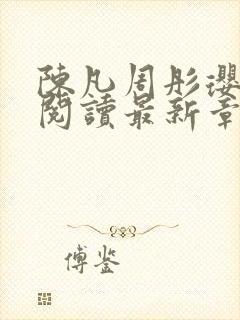 陳凡周彤瓔
閱讀最新章
傅鉴